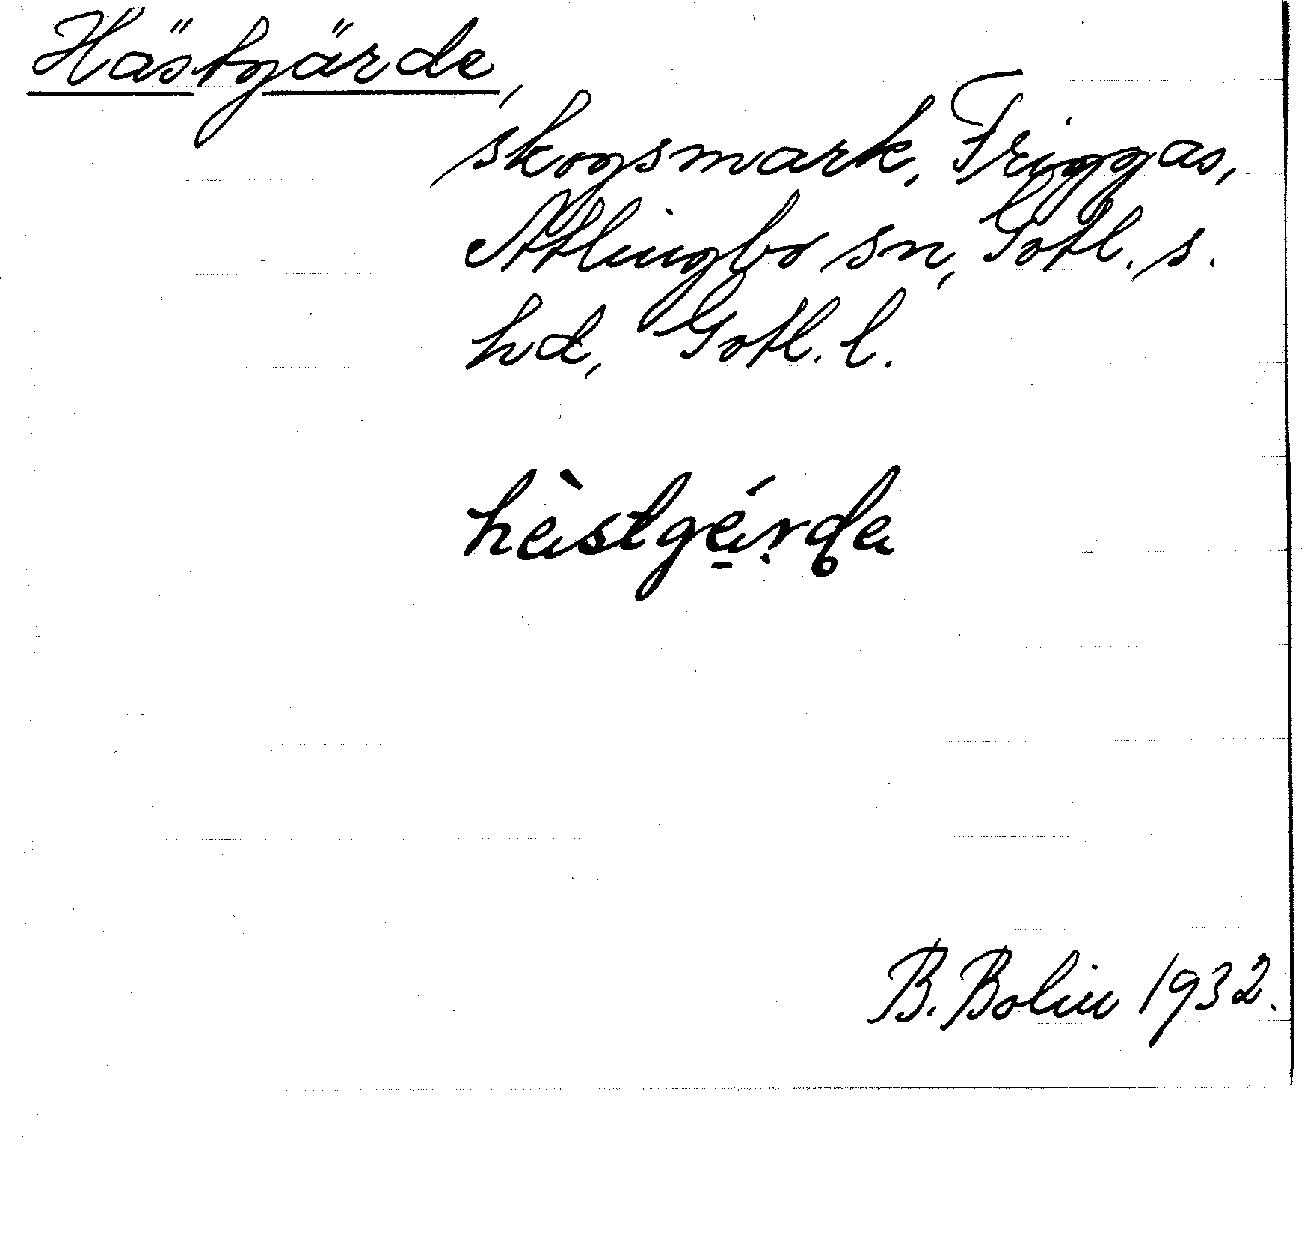 Hästgärde,
skogsmark, Friggas,
Atlingbo sn, Gotl. s.
hd, Gotl. l.
hèstgérda
B. Bolin 1932.